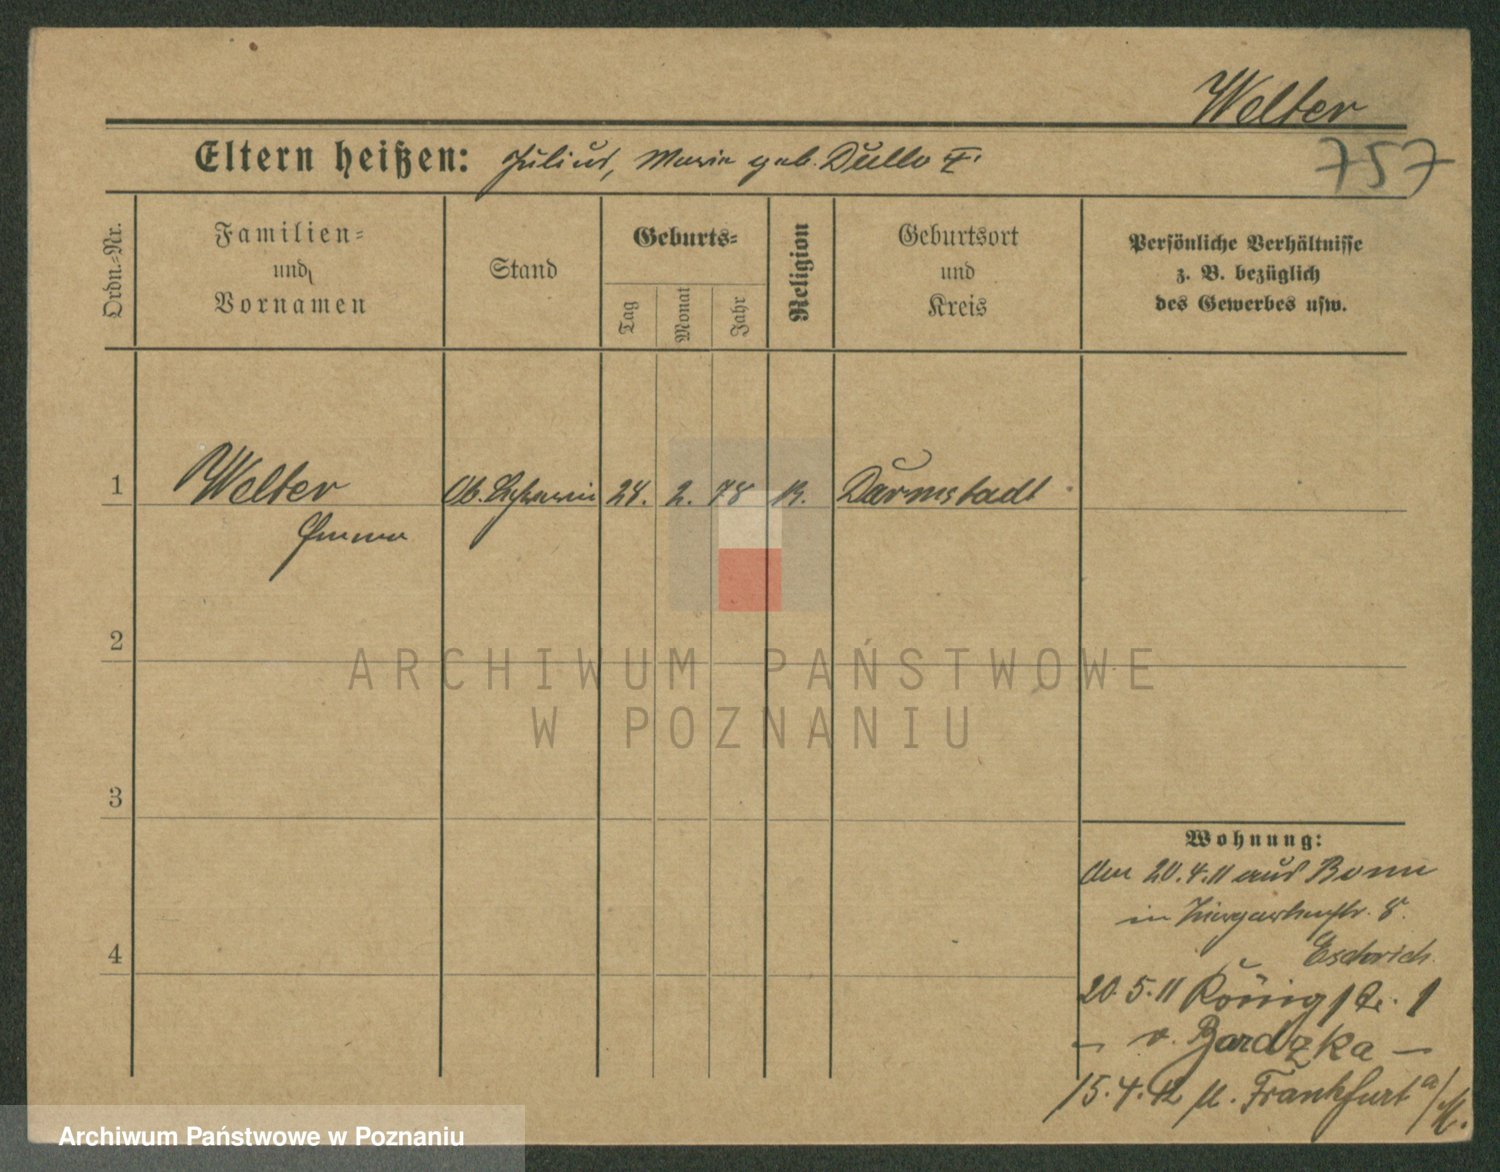 Welter
Eltern heißen: Julius, Marie geb. Dullo
757
Ordn.-Nr.
Familien-
und
Vornamen
Stand
Geburts-
Tag
Monat
Jahr
Religion
Geburtsort
und
Kreis
Persönliche Verhältnisse
z. B. bezüglich
des Gewerbes usw.
1 Welter 24. 2. 78 Darmstadt
Emma
2
ARCHIWUM PAŃSTWOWE
W POZNANIU
3
Wohnung:
den 20.4.11 aus Bonn
in Tiergartenstr. 8.
Eschrich
4
20.5.11 Königstr. 1
— v. Bardzka —
15.4.12 n. Frankfurt a/M.
Archiwum Państwowe w Poznaniu